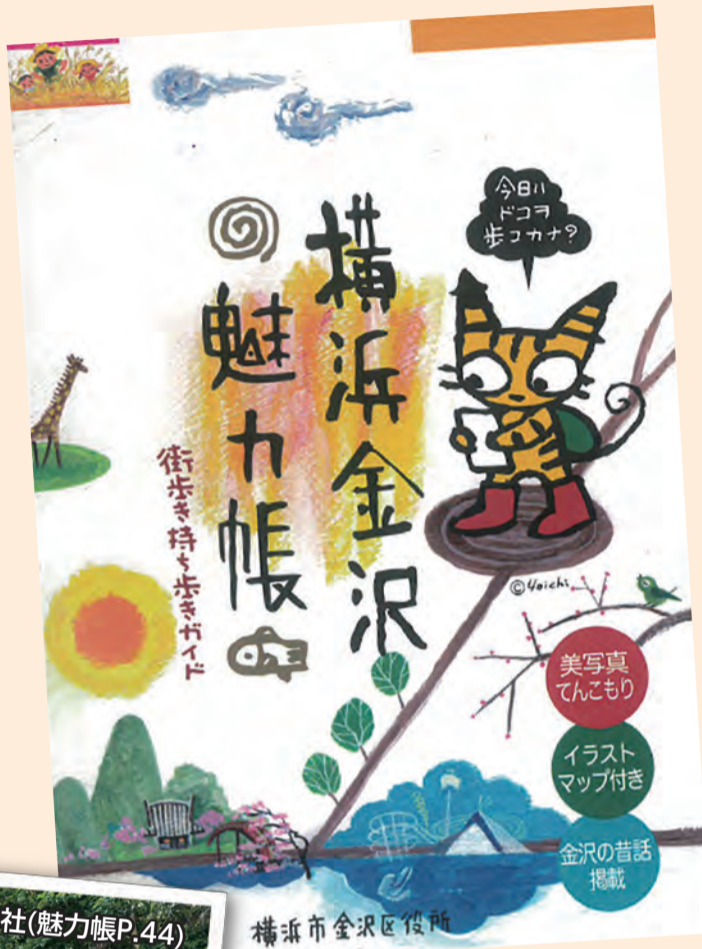 今日ハ
ドコヲ
歩コカナ?
横浜金沢
魅力帳
街歩き持ち歩きガイド
©Yoichi
美写真
てんこもり
イラスト
マップ付き
金沢の昔話
掲載
横浜市金沢区役所
社(魅力帳P.44)